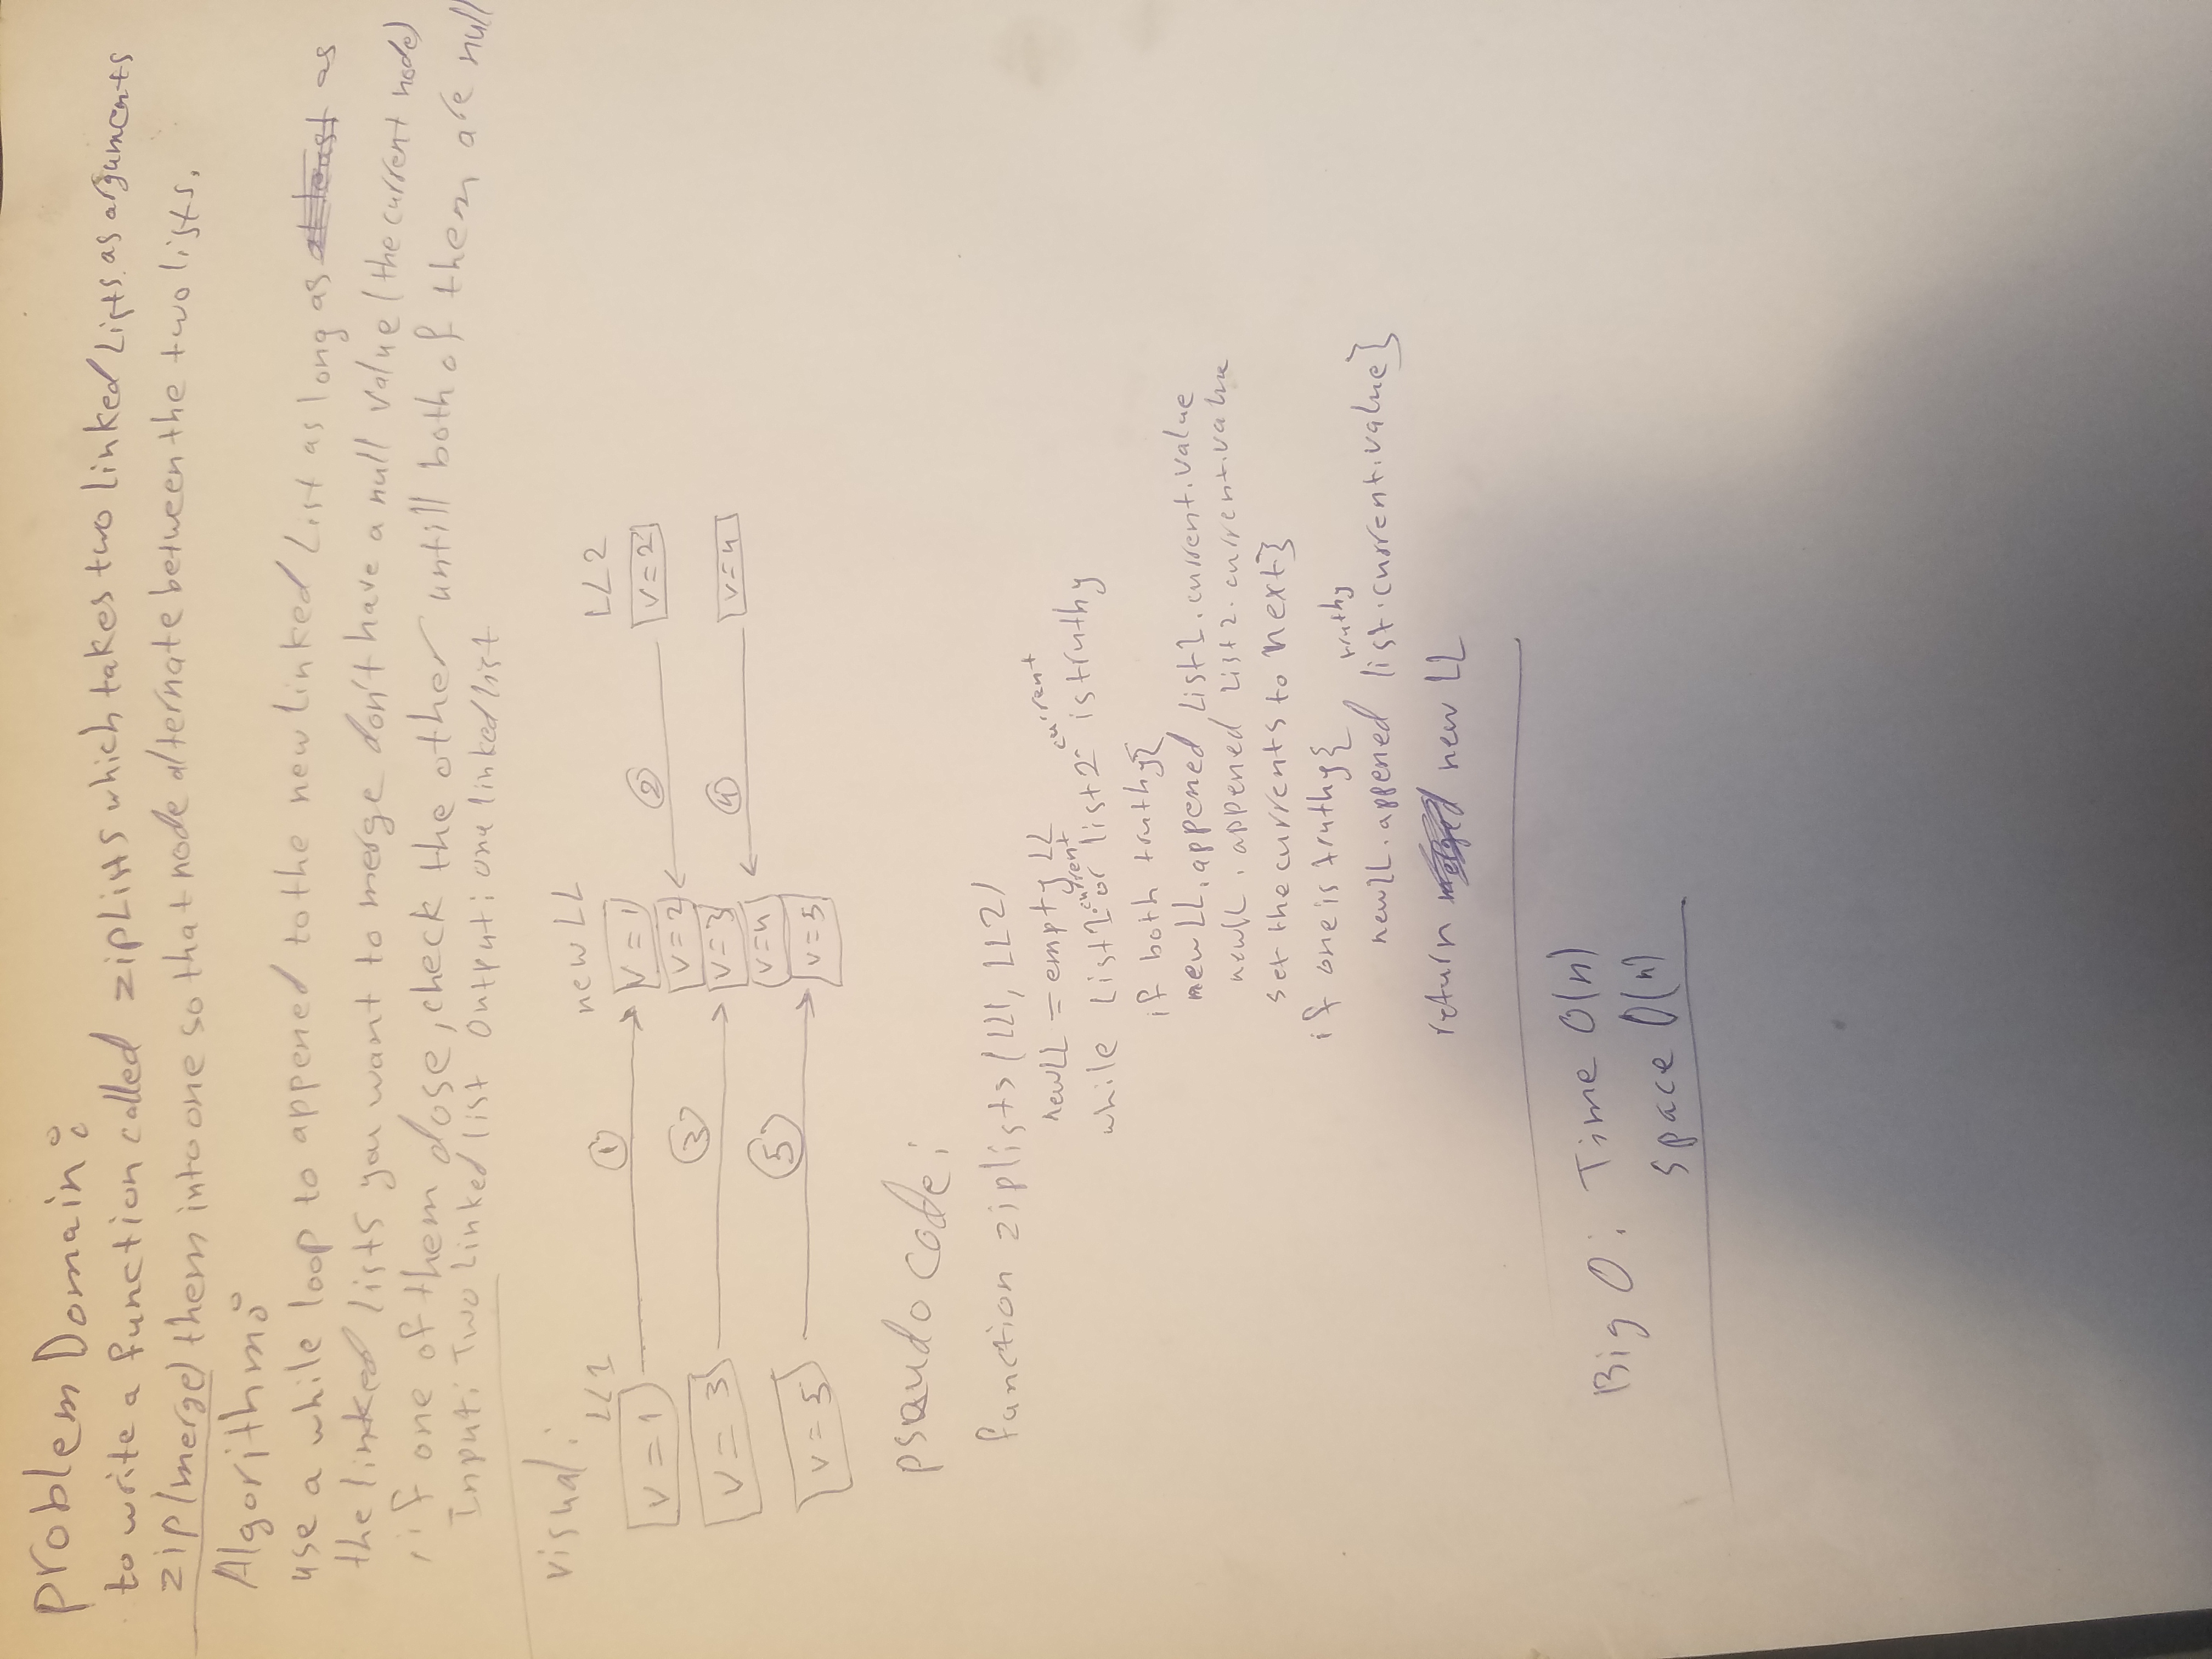 problem Domain:
to write a function called zipLists which takes two linked Lists as arguments
zip(merge) them into one so that node alternate between the two lists.
Algorithm:
use a while loop to appened to the new linked List as long as at least as
the linked lists you want to merge don't have a null value (the current node)
, if one of them dose, check the other untill both of them are null
Input: Two Linked list Output: one linked list
visual:
LL1 new LL LL2
① 
V = 1 V = 1 ② V = 2
V = 2
③
V = 3 V = 3 ④ V = 4
V = 4
⑤
V = 5 V = 5
pseudo code:
function ziplists (LL1, LL2)
newLL = empty LL
while List1.current or list2.current is truthy
if both truthy{
newLL.appened List1.current.value
newLL.appened List2.current.value
set the currents to next}
if one is truthy{
newLL.appened truthy list.current.value}
return merged new LL
Big O: Time O(n)
space O(n)